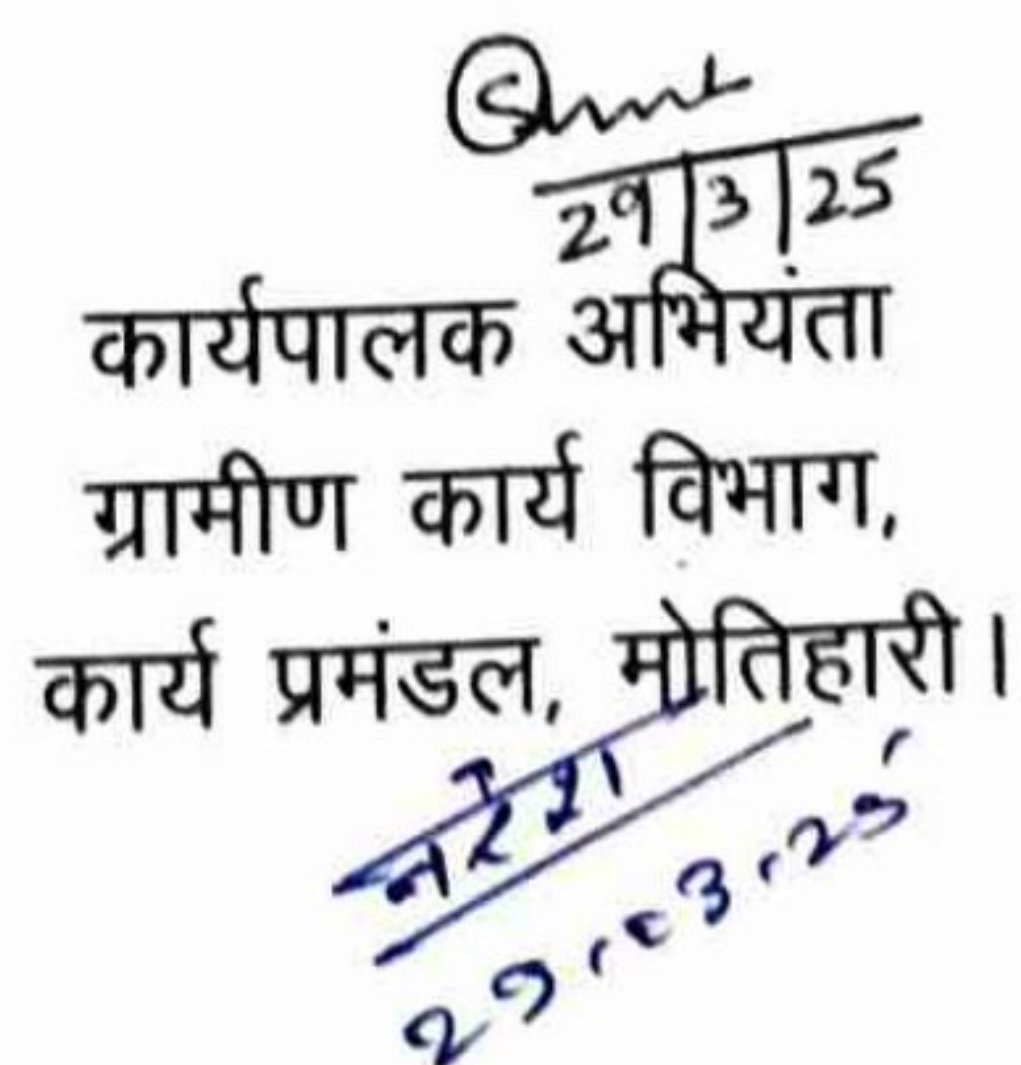 29|3|25
कार्यपालक अभियंता
ग्रामीण कार्य विभाग,
कार्य प्रमंडल, मोतिहारी।
नरेश
29.03.25